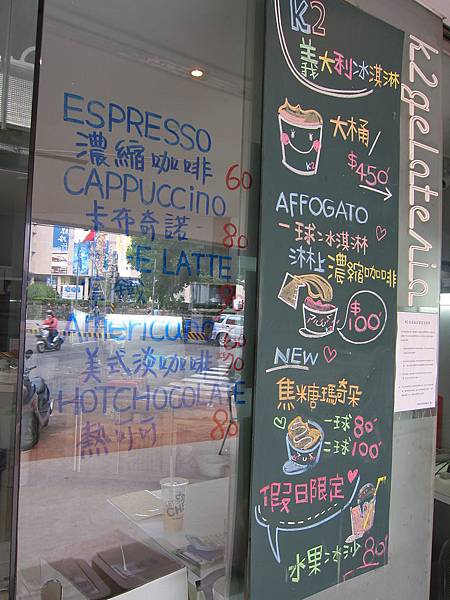 ESPRESSO
濃縮咖啡 60
CAPPUCCINO
卡布奇諾 80
LATTE
AMERICANO
美式淡咖啡
HOTCHOCOLATE
熱可可 80
K2
義大利冰淇淋
大桶
K2
$450
AFFOGATO
一球冰淇淋
淋上濃縮咖啡
$100
NEW
焦糖瑪奇朵
一球80
二球100
假日限定
水果冰沙 80
k2gelateria